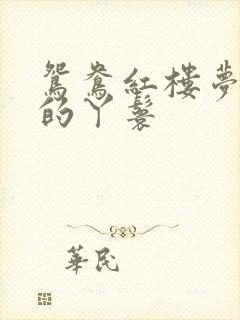 鴛鴦紅樓夢
的丫鬟
華民